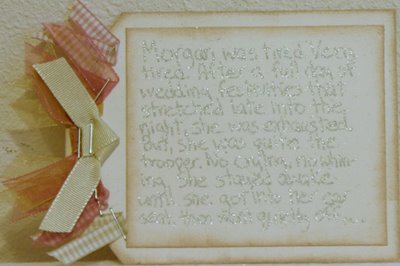 Morgan was tired. Very
tired. After a full day of
wedding festivities that
stretched late into the
night, she was exhausted.
But, she was quite the
trooper. No crying, no whin-
ing. She stayed awake
until she got into her car
seat, then slept quietly